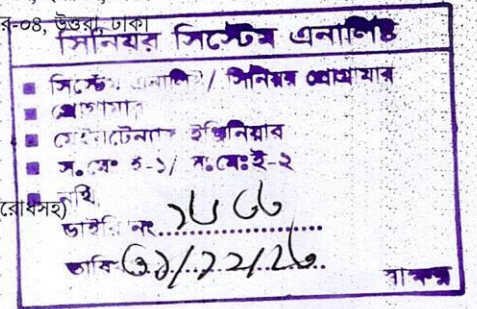 র-০৪, উত্তরা, ঢাকা
সিনিয়র সিস্টেম এনালিষ্ট
সিস্টেম এনালিষ্ট / সিনিয়র প্রোগ্রামার
প্রোগ্রামার
মেইনটেন্যান্স ইঞ্জিনিয়ার
স.মেঃ ই-১/ স.মেঃ ই-২
নথি
রোধসহ)
ডাইরি নং
তারিখ
স্বাক্ষর